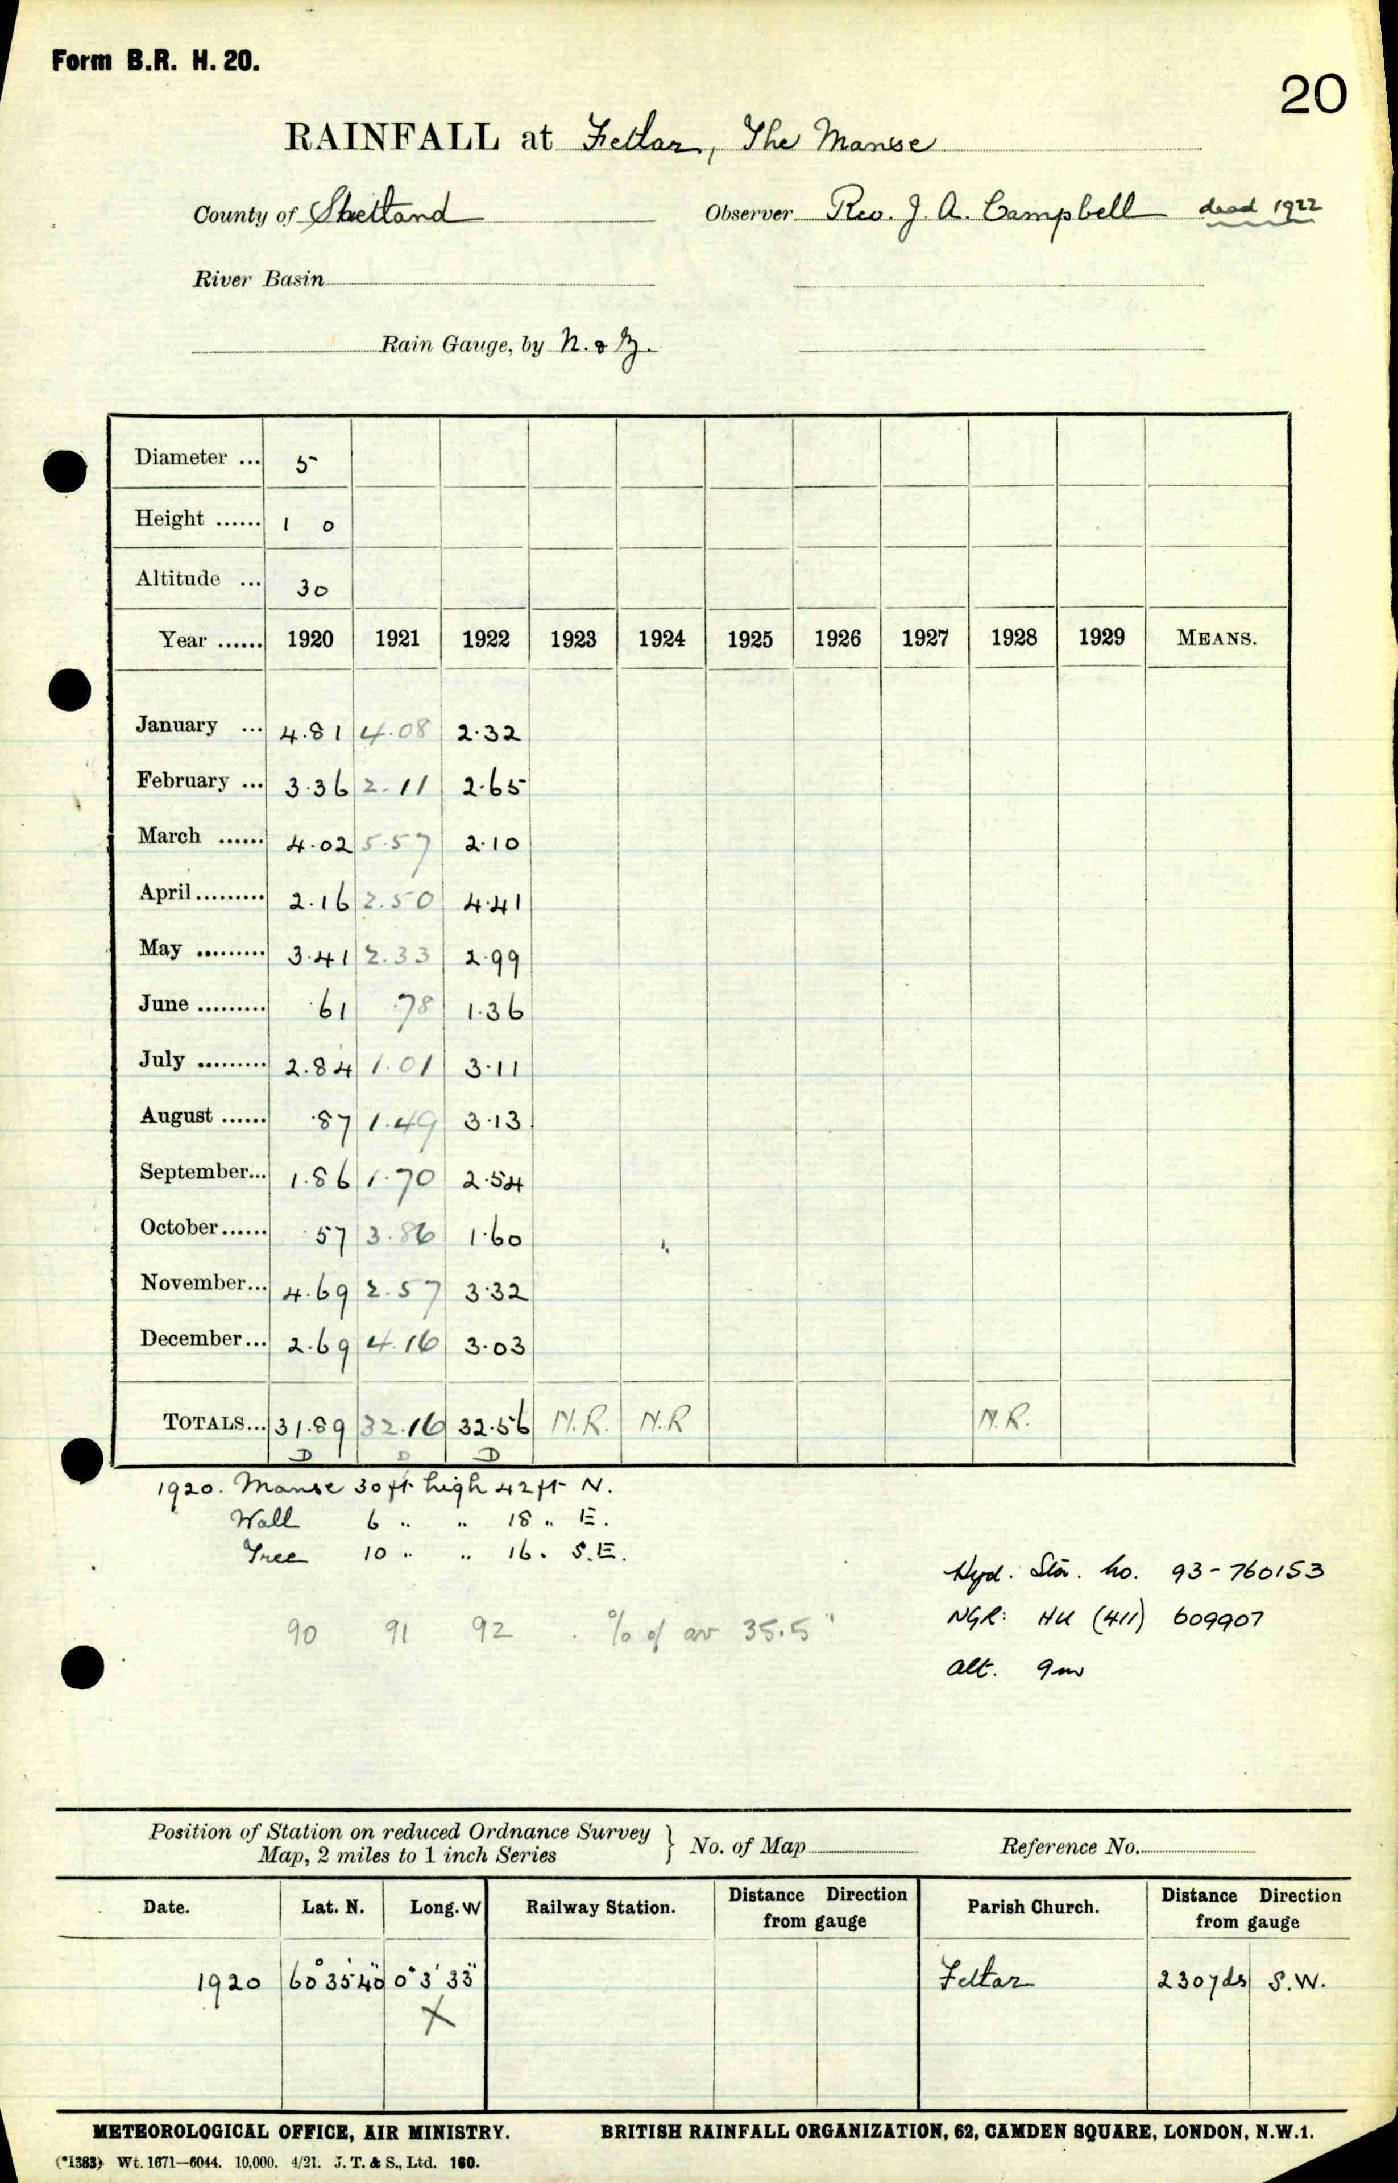 Form B.R. H. 20.
20
RAINFALL at Fetlar, The Manse
County of Shetland Observer Rev. J. A. Campbell dead 1922
River Basin
Rain Gauge, by N. & Z.
Diameter ... 5
Height ...... 1 0
Altitude ... 30
Year ...... 1920 1921 1922 1923 1924 1925 1926 1927 1928 1929 MEANS.
January ... 4.81 4.08 2.32
February ... 3.36 2.11 2.65
March ...... 4.02 5.57 2.10
April ......... 2.16 2.50 4.41
May ......... 3.41 2.33 2.99
June ......... .61 .78 1.36
July ......... 2.84 1.01 3.11
August ...... .87 1.49 3.13
September... 1.86 1.70 2.54
October...... .57 3.86 1.60
November... 4.69 2.57 3.32
December... 2.69 4.16 3.03
TOTALS... 31.89 32.16 32.56 N.R. N.R N.R.
D D D
1920. Manse 30 ft high 42 ft N.
Wall 6 " " 18 " E.
Tree 10 " " 16 . S.E.
Hyd. Stn. No. 93-760153
90 91 92 . % of av 35.5"
NGR: HU (411) 609907
alt. 9m
Position of Station on reduced Ordnance Survey Map, 2 miles to 1 inch Series } No. of Map Reference No.
Date. Lat. N. Long. W Railway Station. Distance Direction from gauge Parish Church. Distance Direction from gauge
1920 60° 35' 40" 0° 3' 33" Fetlar 230 yds S.W.
X
METEOROLOGICAL OFFICE, AIR MINISTRY. BRITISH RAINFALL ORGANIZATION, 62, CAMDEN SQUARE, LONDON, N.W.1.
(*1383) Wt. 1671—6044. 10,000. 4/21. J. T. & S., Ltd. 160.